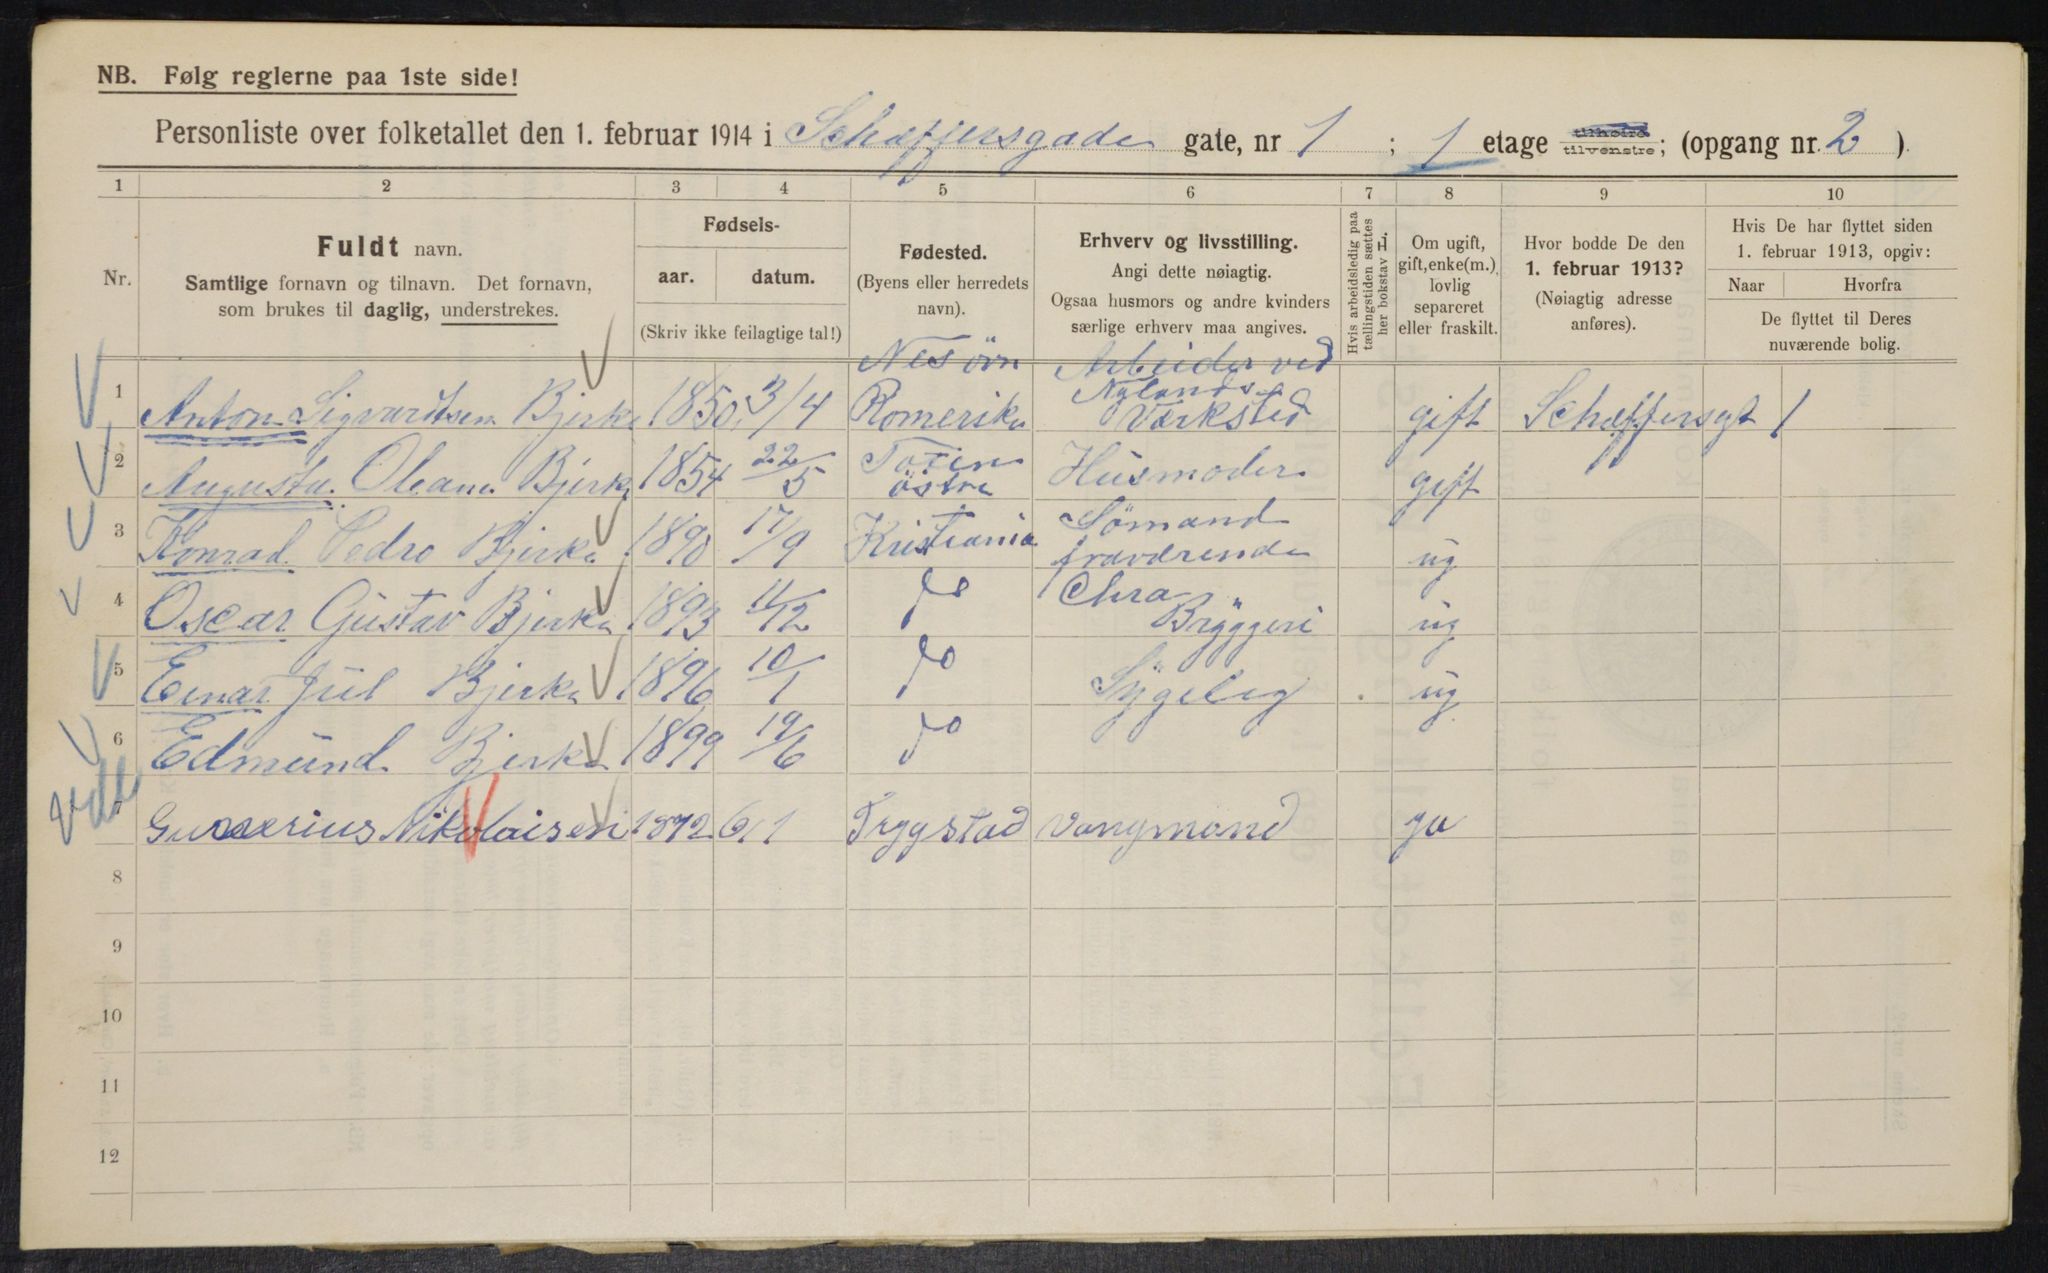 NB. Følg reglerne paa 1ste side!
Personliste over folketallet den 1. februar 1914 i Schæffersgade gate, nr 1 ; 1 etage tilhøire tilvenstre; (opgang nr. 2 ).
1 2 3 4 5 6 7 8 9 10
Nr.
Fuldt navn.
Samtlige fornavn og tilnavn. Det fornavn,
som brukes til daglig, understrekes.
Fødsels-
aar. datum.
(Skriv ikke feilagtige tal!)
Fødested.
(Byens eller herredets
navn).
Erhverv og livsstilling.
Angi dette nøiagtig.
Ogsaa husmors og andre kvinders
særlige erhverv maa angives.
Hvis arbeidsledig paa
tællingstiden sættes
her bokstav L.
Om ugift,
gift, enke(m.),
lovlig
separeret
eller fraskilt.
Hvor bodde De den
1. februar 1913?
(Nøiagtig adresse
anføres).
Hvis De har flyttet siden
1. februar 1913, opgiv:
Naar Hvorfra
De flyttet til Deres
nuværende bolig.
1 Anton Sigvardtsen Bjerke 1850 3/4 Nes övr Romerike Arbeider ved Nylands Værksted gift Schæffersgt 1
2 Augusta Oleane Bjerke 1854 22/5 Toten östre Husmoder gift
3 Konrad Pedro Bjerke 1890 17/9 Kristiania Sömand fraværende ug
4 Oscar Gustav Bjerke 1893 11/12 do Chra Bryggeri ug
5 Einar Jul Bjerke 1896 10/1 do Sygelig ug
6 Edmund Bjerke 1899 19/6 do
7 Nikolaisen 1872 6/1 Trygstad Vongmand ja
8
9
10
11
12